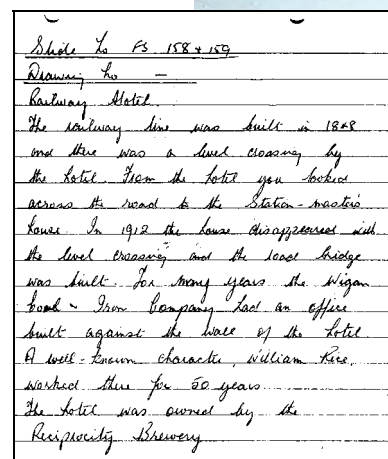 Slide No FS. 158 + 159
Drawing No —
Railway Hotel.
The railway line was built in 1848
and there was a level crossing by
the hotel. From the hotel you looked
across the road to the Station-master's
house. In 1912 the house disappeared with
the level crossing and the road bridge
was built. For many years the Wigan
Coal - Iron Company had an office
built against the wall of the hotel
A well-known character, William Rice,
worked there for 50 years.
The hotel was owned by the
Reciprocity Brewery